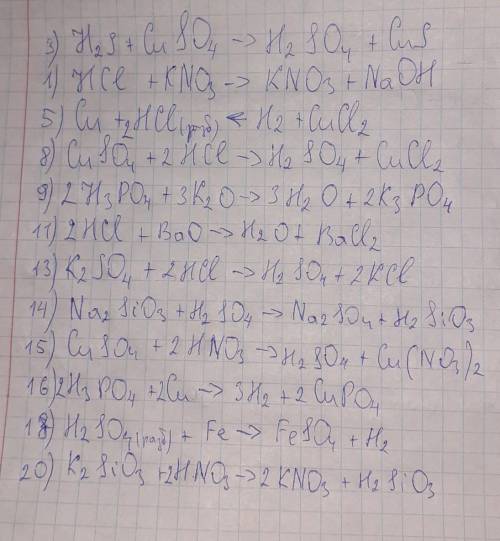 3) H2S + CuSO4 → H2SO4 + CuS
1) HCl + KNO3 → KNO3 + NaOH
5) Cu + 2HCl(разб) ← H2 + CuCl2
8) CuSO4 + 2HCl → H2SO4 + CuCl2
9) 2H3PO4 + 3K2O → 3H2O + 2K3PO4
11) 2HCl + BaO → H2O + BaCl2
13) K2SO4 + 2HCl → H2SO4 + 2KCl
14) Na2SiO3 + H2SO4 → Na2SO4 + H2SiO3
15) CuSO4 + 2HNO3 → H2SO4 + Cu(NO3)2
16) 2H3PO4 + 2Cu → 3H2 + 2CuPO4
18) H2SO4(разб) + Fe → FeSO4 + H2
20) K2SiO3 + 2HNO3 → 2KNO3 + H2SiO3